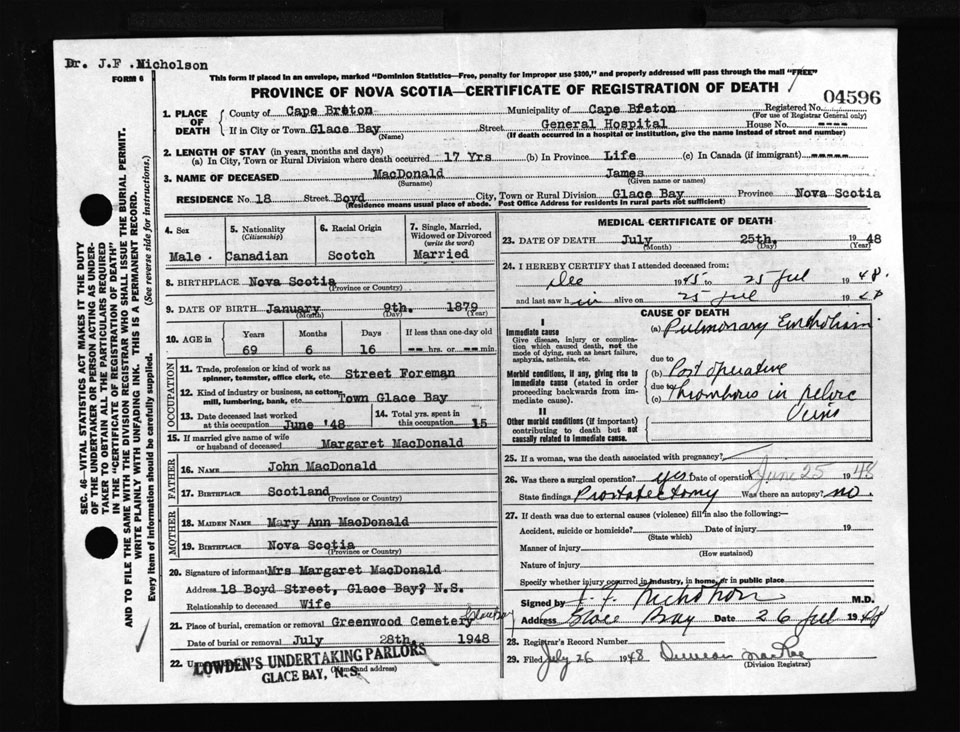 Dr. J.F .Nicholson
FORM 6
This form if placed in an envelope, marked "Dominion Statistics—Free, penalty for improper use $300," and properly addressed will pass through the mail "FREE"
PROVINCE OF NOVA SCOTIA—CERTIFICATE OF REGISTRATION OF DEATH
04596
1. PLACE OF DEATH
County of Cape Breton Municipality of Cape Breton Registered No.
(For use of Registrar General only)
If in City or Town Glace Bay Street General Hospital House No. ----
(Name) (If death occurred in a hospital or institution, give the name instead of street and number)
2. LENGTH OF STAY (in years, months and days)
(a) In City, Town or Rural Division where death occurred 17 Yrs (b) In Province Life (c) In Canada (if immigrant) -----
3. NAME OF DECEASED MacDonald James
(Surname) (Given name or names)
RESIDENCE No. 18 Street Boyd City, Town or Rural Division Glace Bay Province Nova Scotia
(Residence means usual place of abode. Post Office Address for residents in rural parts not sufficient)
4. Sex
5. Nationality (Citizenship)
6. Racial Origin
7. Single, Married, Widowed or Divorced (write the word)
Male. Canadian Scotch Married
8. BIRTHPLACE Nova Scotia
(Province or Country)
9. DATE OF BIRTH January 9th. 1879
(Month) (Day) (Year)
10. AGE in
Years Months Days If less than one-day old
69 6 16 -- hrs. or -- min.
OCCUPATION
11. Trade, profession or kind of work as spinner, teamster, office clerk, etc. Street Foreman
12. Kind of industry or business, as cotton mill, lumbering, bank, etc. Town Glace Bay
13. Date deceased last worked at this occupation June '48
14. Total yrs. spent in this occupation 15
15. If married give name of wife or husband of deceased Margaret MacDonald
FATHER
16. NAME John MacDonald
17. BIRTHPLACE Scotland
(Province or Country)
MOTHER
18. MAIDEN NAME Mary Ann MacDonald
19. BIRTHPLACE Nova Scotia
(Province or Country)
20. Signature of informant Mrs Margaret MacDonald
Address 18 Boyd Street, Glace Bay, N.S.
Relationship to deceased Wife
21. Place of burial, cremation or removal Greenwood Cemetery Glace Bay
Date of burial or removal July 28th. 1948
22.
(Name and address)
LOWDEN'S UNDERTAKING PARLORS
GLACE BAY, N.S.
MEDICAL CERTIFICATE OF DEATH
23. DATE OF DEATH July 25th. 1948
(Month) (Day) (Year)
24. I HEREBY CERTIFY that I attended deceased from:
Dec 1945 to 25 Jul 1948.
and last saw h im alive on 25 Jul 1948
CAUSE OF DEATH
I
Immediate cause
Give disease, injury or complication which caused death, not the mode of dying, such as heart failure, asphyxia, asthenia, etc.
(a) Pulmonary Embolism
due to
Morbid conditions, if any, giving rise to immediate cause (stated in order proceeding backwards from immediate cause).
(b) Post operative
due to
(c) Thrombosis in pelvic Veins
II
Other morbid conditions (if important) contributing to death but not causally related to immediate cause.
25. If a woman, was the death associated with pregnancy?
26. Was there a surgical operation? yes Date of operation June 25 1948
State findings Prostatectomy Was there an autopsy? no.
27. If death was due to external causes (violence) fill in also the following:—
Accident, suicide or homicide? Date of injury 19
(State which)
Manner of injury
(How sustained)
Nature of injury
Specify whether injury occurred in industry, in home, or in public place
Signed by J. F. Nicholson M.D.
Address Glace Bay Date 26 Jul 1948
28. Registrar's Record Number
29. Filed July 26 1948 Duncan MacRae
(Division Registrar)
SEC. 46—VITAL STATISTICS ACT MAKES IT THE DUTY
OF THE UNDERTAKER OR PERSON ACTING AS UNDER-
TAKER TO OBTAIN ALL THE PARTICULARS REQUIRED
IN THE "CERTIFICATE OF REGISTRATION OF DEATH"
AND TO FILE THE SAME WITH THE DIVISION REGISTRAR WHO SHALL ISSUE THE BURIAL PERMIT.
WRITE PLAINLY WITH UNFADING INK. THIS IS A PERMANENT RECORD.
Every item of information should be carefully supplied. (See reverse side for instructions.)